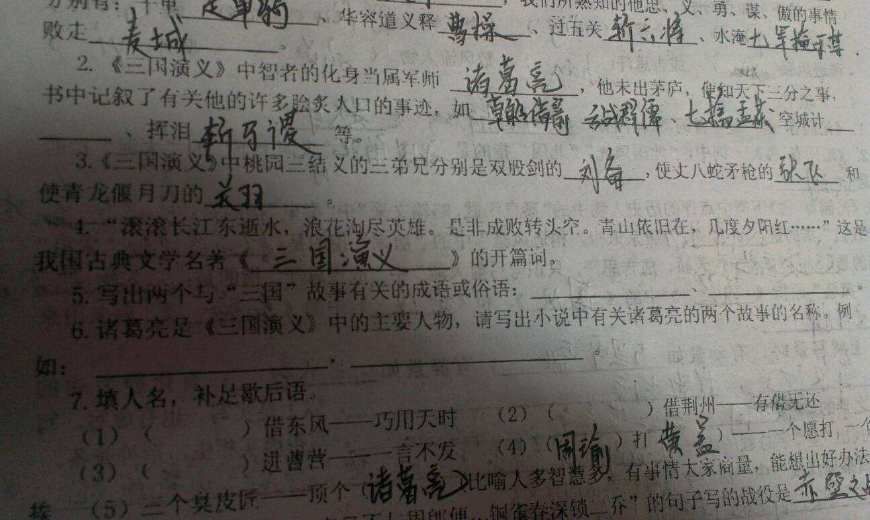 走单骑、华容道义释曹操、过五关斩六将、水淹七军
败走麦城。
2.《三国演义》中智者的化身当属军师 诸葛亮,他未出茅庐,便知天下三分之事,
书中记叙了有关他的许多脍炙人口的事迹,如 草船借箭 舌战群儒、七擒孟获 空城计
、挥泪斩马谡 等。
3.《三国演义》中桃园三结义的三弟兄分别是双股剑的刘备,使丈八蛇矛枪的张飞 和
使青龙偃月刀的 关羽。
4.“滚滚长江东逝水,浪花淘尽英雄。是非成败转头空。青山依旧在,几度夕阳红……”这是
我国古典文学名著《三国演义》的开篇词。
5.写出两个与“三国”故事有关的成语或俗语:、。
6.诸葛亮是《三国演义》中的主要人物,请写出小说中有关诸葛亮的两个故事的名称,例
如:,。
7.填人名,补足歇后语。
(1)( )借东风——巧用天时 (2)( )借荆州——有借无还
(3)( )进曹营——一言不发 (4)(周瑜)打(黄盖)——一个愿打,一个
(5)三个臭皮匠——顶个(诸葛亮)比喻人多智慧多,有事情大家商量,能想出好办法
铜雀春深锁二乔”的句子写的战役是赤壁之战